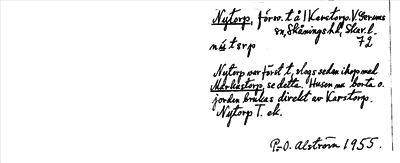 Nytorp, förr t å l Karstorp. V. Gerums
sn, Skånings hd, Skar. l.
72
nýtårp
Nytorp var först t, slogs sedan ihop med
Markastorp, se detta. Husen nu borta o.
jorden brukas direkt av Karstorp.
Nytorp T. ek.
P-O. Alström 1955.